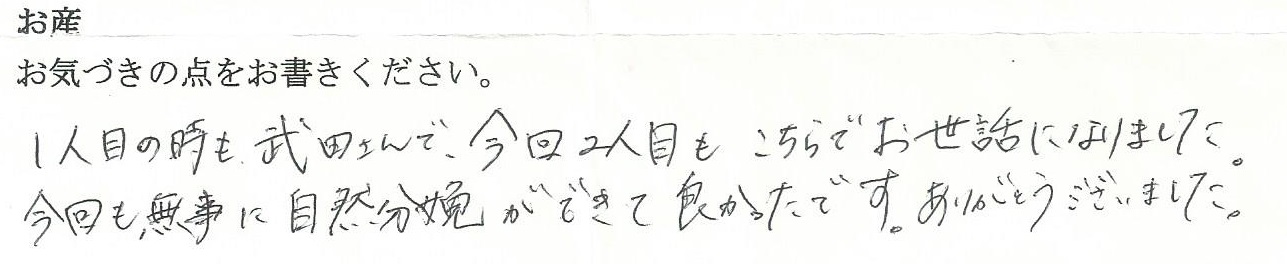 お産
お気づきの点をお書きください。
1人目の時も、武田さんで、今回2人目もこちらでお世話になりました。
今回も、無事に自然分娩ができて良かったです。ありがとうございました。